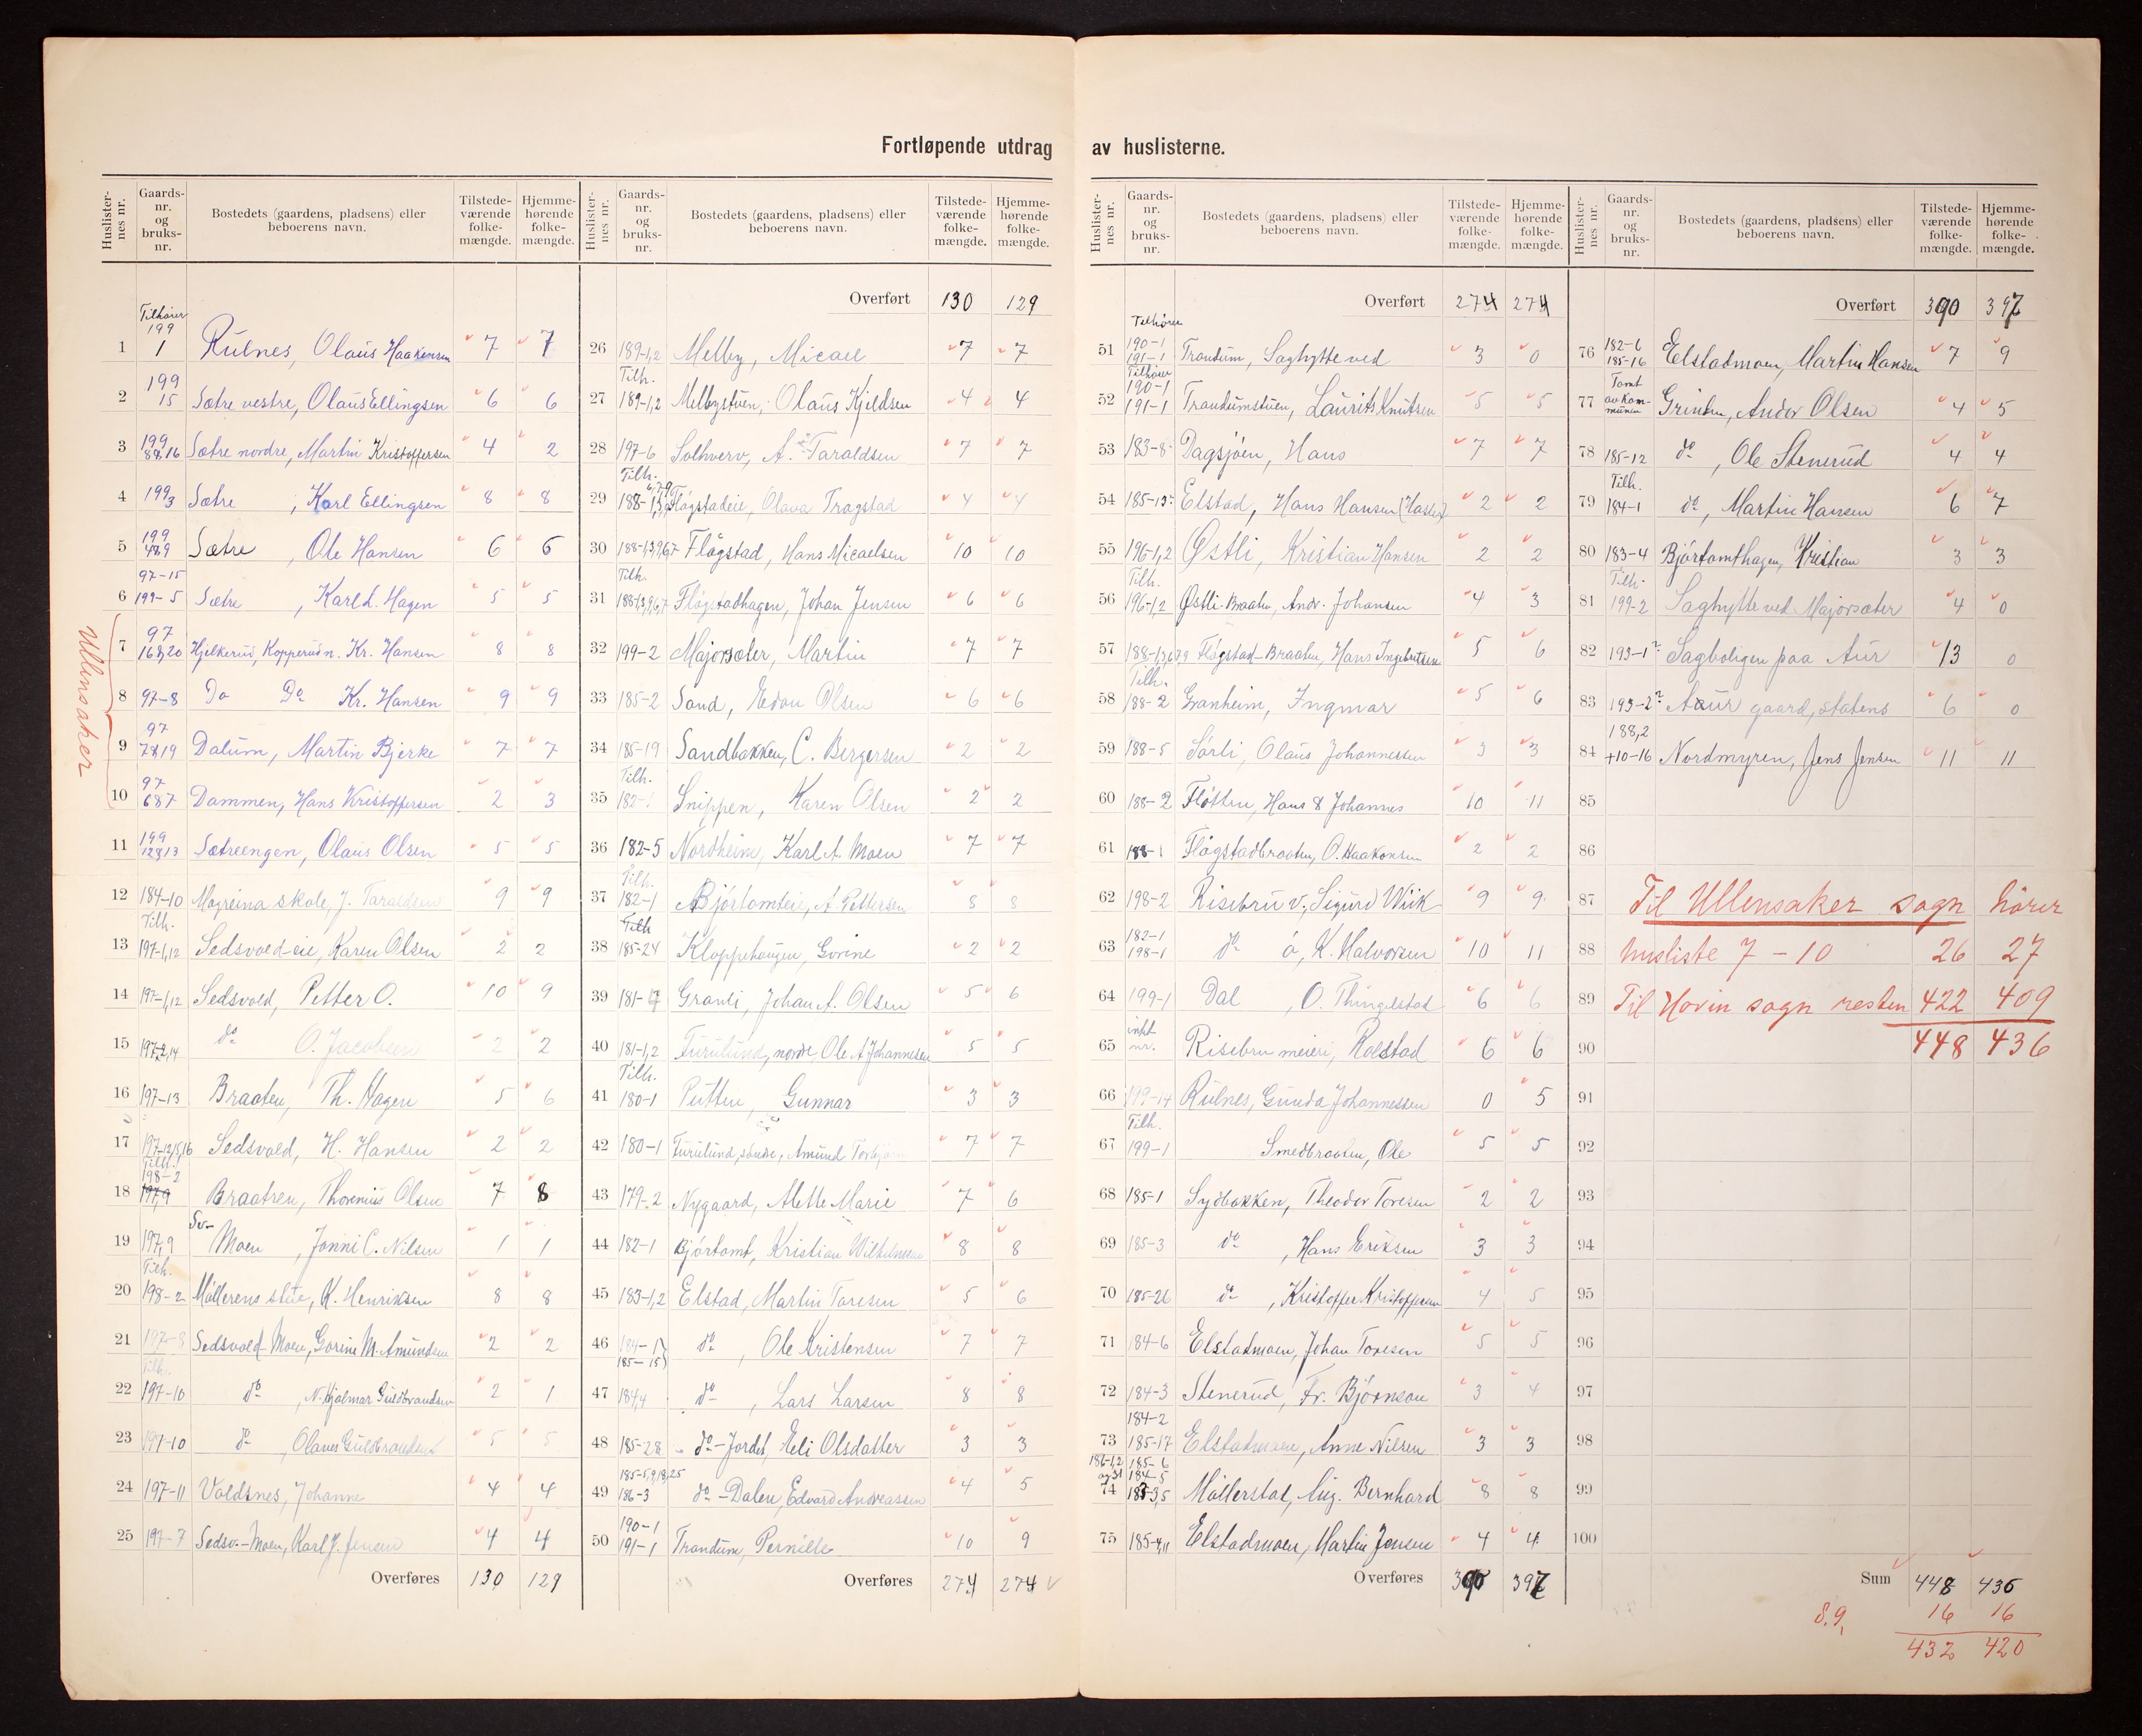 Fortløpende utdrag av huslisterne.
Huslister-nes nr. Gaards-nr. og bruks-nr. Bostedets (gaardens, pladsens) eller beboerens navn. Tilstede-værende folke-mængde. Hjemme-hørende folke-mængde.
Tilhører
1 199 1 Rulnes, Olaus Haakensen 7 7
2 199 15 Sætre vestre, Olaus Ellingsen 6 6
3 199 8&16 Sætre nordre, Martin Kristoffersen 4 2
4 199 3 Sætre, Karl Ellingsen 8 8
5 199 4&9 Sætre, Ole Hansen 6 6
6 97-15 199-5 Sætre, Karl L. Hagen 5 5
Ullensaker
7 97 16&20 Hjelkerud, Kopperud n. Kr. Hansen 8 8
8 97-8 Do Do Kr. Hansen 9 9
9 97 7&19 Dalum, Martin Bjerke 7 7
10 97 6&7 Dammen, Hans Kristoffersen 2 3
11 199 12&13 Sætreengen, Olaus Olsen 5 5
12 184-10 Mogreina skole, J. Taraldsen 9 9
Tilh.
13 197-1,12 Sedsvold-eie, Karen Olsen 2 2
14 197-1,12 Sedsvold, Petter O. 10 9
15 197-2,14 do O. Jacobsen 2 2
16 197-13 Braaten, Th. Hagen 5 6
17 197-12,15,16 Sedsvold, H. Hansen 2 2
Tilh.
18 198-2 197,9 Braatren, Thorenius Olsen 7 8
19 197,9 Sv-Moen, Jonni C. Nilsen 1 1
Tilh.
20 198-2 Möllerens stue, K. Henriksen 8 8
21 197-8 Sedsvold-Moen, Gorine M. Amundsen 2 2
Tilh.
22 197-10 do, N. Hjalmar Guldbrandsen 2 1
23 197-10 do, Olaves Guldbrandsen 5 5
24 197-11 Voldsnes, Johanne 4 4
25 197-7 Sedsv.-Moen, Karl J. Jensen 4 4
Overføres 130 129
Huslister-nes nr. Gaards-nr. og bruks-nr. Bostedets (gaardens, pladsens) eller beboerens navn. Tilstede-værende folke-mængde. Hjemme-hørende folke-mængde.
Overført 130 129
26 189-1,2 Melby, Micael 7 7
Tilh.
27 189-1,2 Melbystuen, Olaus Kjeldsen 4 4
28 197-6 Solhverv, A. Taraldsen 7 7
Tilh.
29 188-1,3,6,7,9 Flågstadeie, Olava Trogstad 4 4
30 188-1,3,9,6,7 Flågstad, Hans Micaelsen 10 10
Tilh.
31 188-1,3,9,6,7 Flögstadhagen, Johan Jensen 6 6
32 199-2 Majorsæter, Martin 7 7
33 185-2 Sand, Edvu Olsen 6 6
34 185-19 Sandbakken, C. Bergersen 2 2
Tilh.
35 182-1 Snippen, Karen Olsen 2 2
36 182-5 Nordheim, Karl A. Moen 7 7
Tilh.
37 182-1 Bjørtomteie, A. Pettersen 8 8
Tilh
38 185-24 Kloppehaugen, Gorine 2 2
39 181- Granli, Johan A. Olsen 5 6
40 181-1,2 Furulund, nordre, Ole A. Johannesen 5 5
Tilh.
41 180-1 Putten, Gunnar 3 3
42 180-1 Furulund, söndre, Amund 7 7
43 179-2 Nygaard, Alette Marie 7 6
44 182-1 Bjørtomt, Kristian Wilhelmsen 8 8
45 183-1,2 Elstad, Martin Toresen 5 6
46 184-1 185-15 do, Ole Kristensen 7 7
47 184,4 do, Lars Larsen 8 8
48 185-28 do-Jordet, Eeli Olsdatter 3 3
49 185-5,9,18,25 186-3 do-Dalen, Edvard Andreassen 4 5
50 190-1 191-1 Trandum, Pernille 10 9
Overføres 274 274
Huslister-nes nr. Gaards-nr. og bruks-nr. Bostedets (gaardens, pladsens) eller beboerens navn. Tilstede-værende folke-mængde. Hjemme-hørende folke-mængde.
Overført 274 274
Tilhører
51 190-1 191-1 Trandum, Saghytte ved 3 0
Tilhører
52 190-1 191-1 Trandumstuen, Laurits Knutsen 5 5
53 183-8 Dagsjøen, Hans 7 7
54 185-13 Elstad, Hans Hansen 2 2
55 196-1,2 Østli, Kristian Hansen 2 2
Tilh.
56 196-1,2 Østli-Braaten, Andr. Johansen 4 3
57 188-1,3,6,7,9 Flögstad-Braaten, Hans Ingebretsen 5 6
Tilh.
58 188-2 Granheim, Ingmar 5 6
59 188-5 Sörli, Olaus Johannessen 3 3
60 188-2 Fløtten, Hans & Johannes 10 11
61 188-1 Flögstadbraaten, O. Haakonsen 2 2
62 198-2 Risebru v., Sigurd Wiik 9 9
63 182-1 198-1 do ö, K. Halvorsen 10 11
64 199-1 Dal, O. Thingelstad 6 6
65 intet nr. Risebru meieri, Rolstad 6 6
66 199-14 Rulnes, Gunda Johannessen 0 5
Tilh.
67 199-1 Smedbraaten, Ole 5 5
68 185-1 Sydbakken, Theodor Toresen 2 2
69 185-3 do, Hans Eriksen 3 3
70 185-26 do, Kristoffer Kristoffersen 4 5
71 184-6 Elstadmoen, Johan Toresen 5 5
72 184-3 Stenerud, Fr. Björnson 3 4
73 184-2 185-17 Elstadmoen, Anne Nilsen 3 3
74 186-1,2 185-6 184-5 183-3,5 Möllerstal, Aug. Bernhard 8 8
75 185-4,11 Elstadmoen, Martin Jensen 4 4
Overføres 390 397
Huslister-nes nr. Gaards-nr. og bruks-nr. Bostedets (gaardens, pladsens) eller beboerens navn. Tilstede-værende folke-mængde. Hjemme-hørende folke-mængde.
Overført 390 397
76 182-6 185-16 Eelstadmoen, Martin Hansen 7 9
77 Tomt av Kommunen Grinden, Andor Olsen 4 5
78 185-12 do, Ole Stenerud 4 4
Tilh.
79 184-1 do, Martin Hansen 6 7
80 183-4 Bjørtomthagen, Kristian 3 3
Tilh.
81 199-2 Saghytte ved Majorsæter 4 0
82 193-1? Sagboligen paa Aur 13 0
83 193-2? Aur gaard, statens 6 0
84 188,2 +10-16 Nordmyren, Jens Jensen 11 11
85
86
87 Til Ullensaker sogn hører
88 husliste 7 - 10 26 27
89 Til Hovin sogn resten 422 409
90 448 436
91
92
93
94
95
96
97
98
99
100
Sum 448 436
8.9. 16 16
432 420